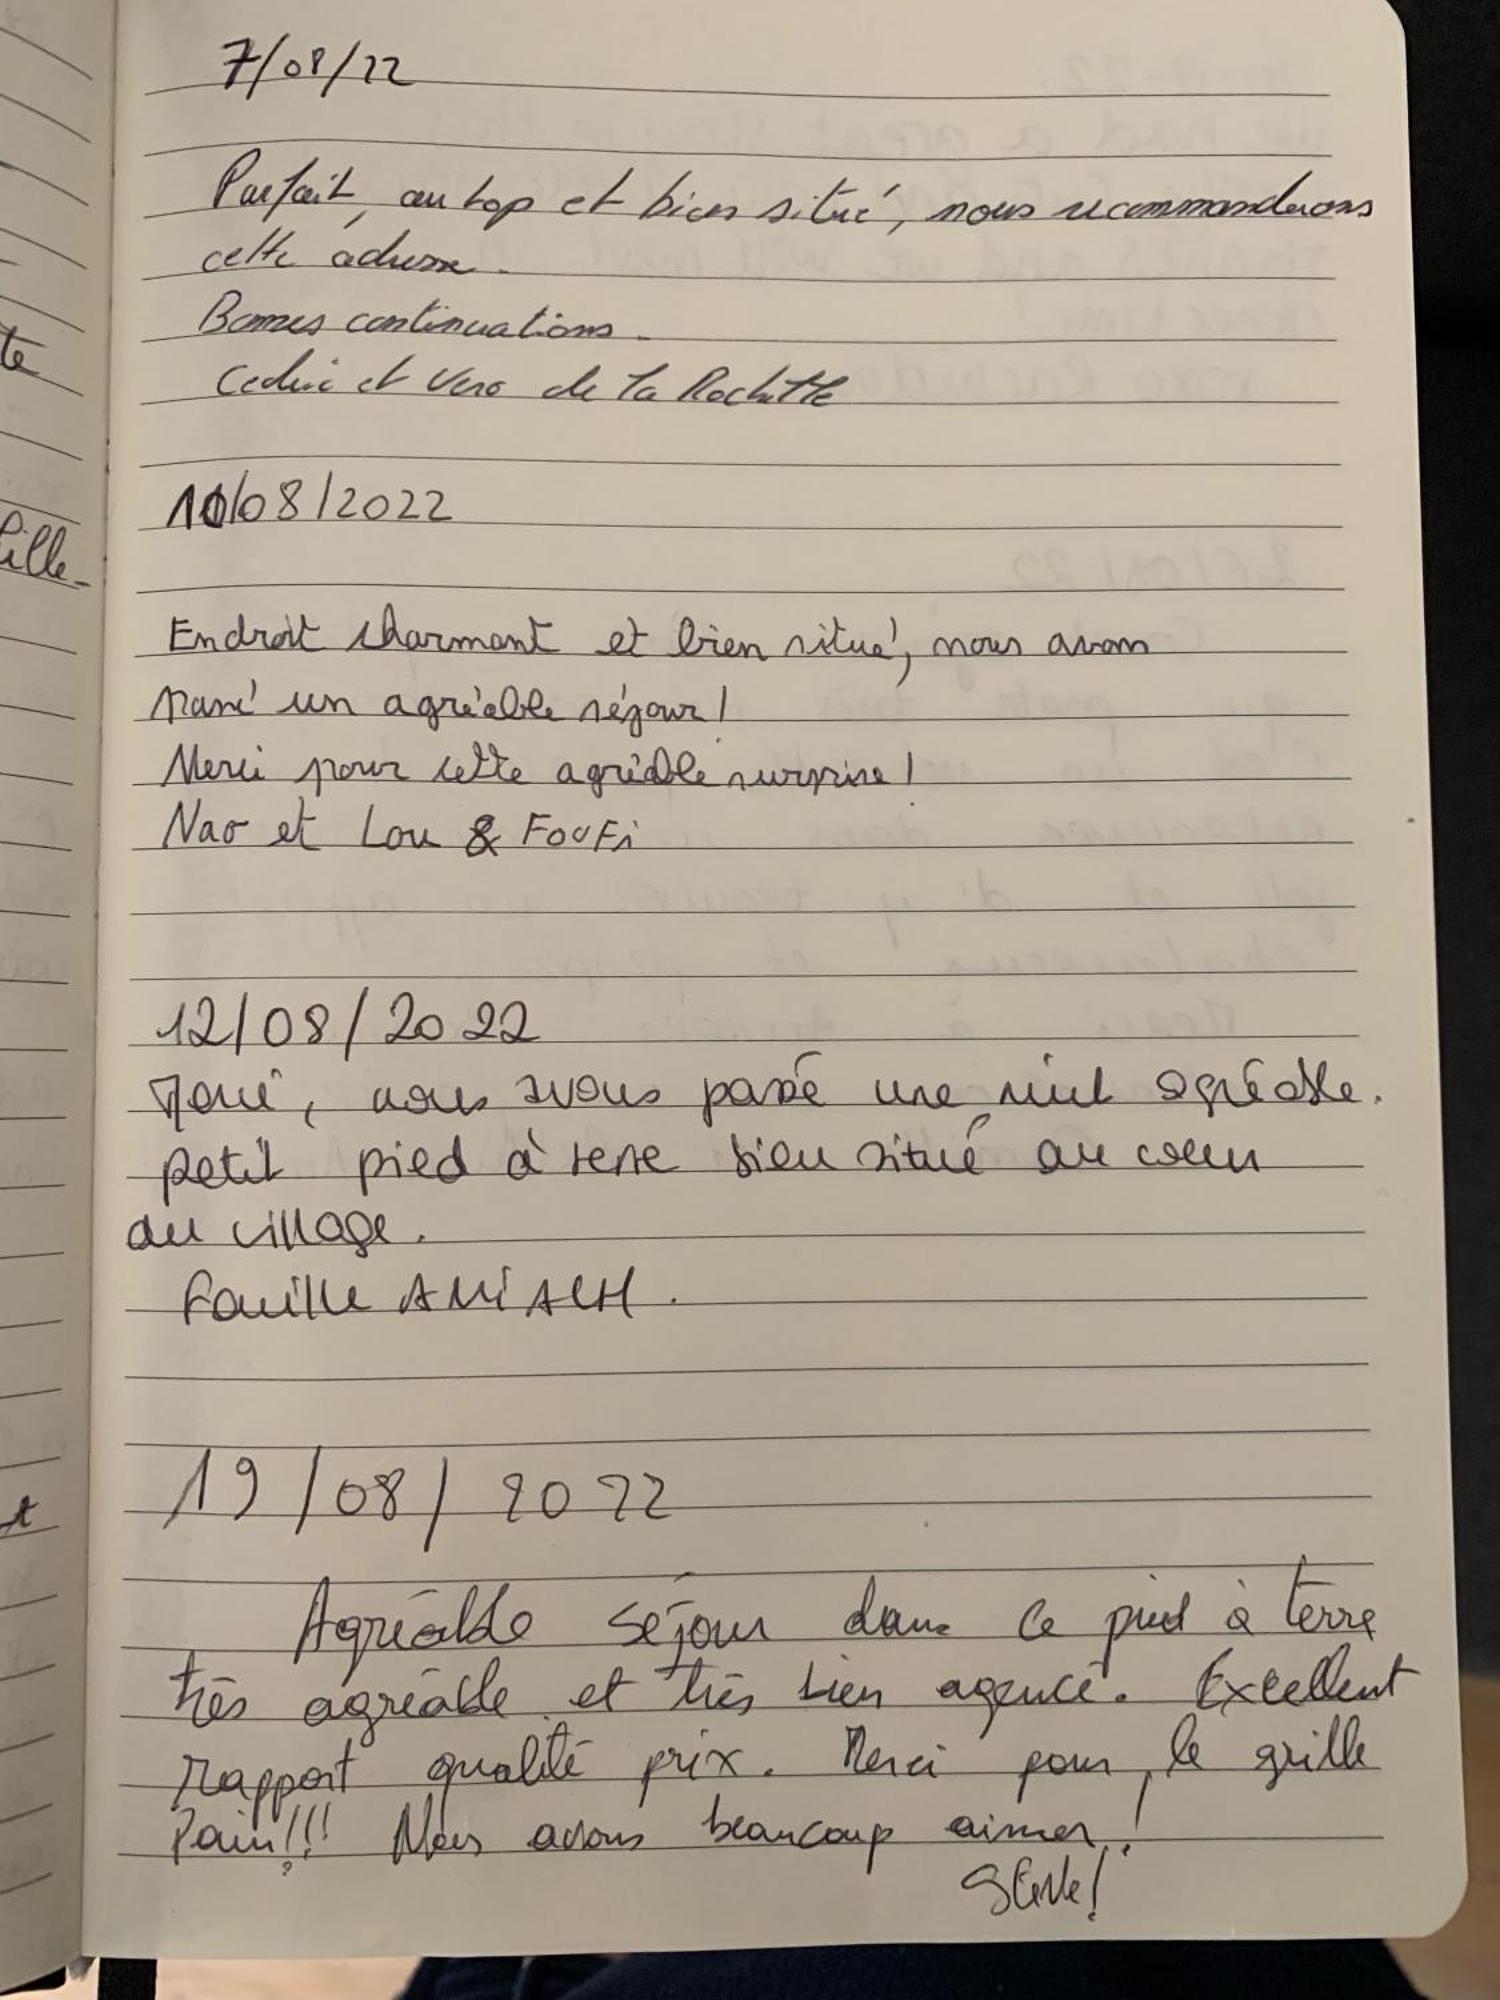 7/08/22
Parfait, au top et bien situé, nous recommanderons
cette adresse.
Bonnes continuations.
Cedric et Vero de la Rochette
10/08/2022
Endroit charmant et bien situé, nous avons
passé un agréable séjour!
Merci pour cette agréable surprise!
Nao et Lou & FouFi
12/08/2022
Merci, nous avons passé une nuit agréable.
petit pied à terre bien situé au coeur
du village.
Famille
19/08/2022
Agréable séjour dans ce pied à terre
très agréable et très bien agencé. Excellent
rapport qualité prix. Merci pour le grille
Pain!!! Nous avons beaucoup aimer!
te
fille